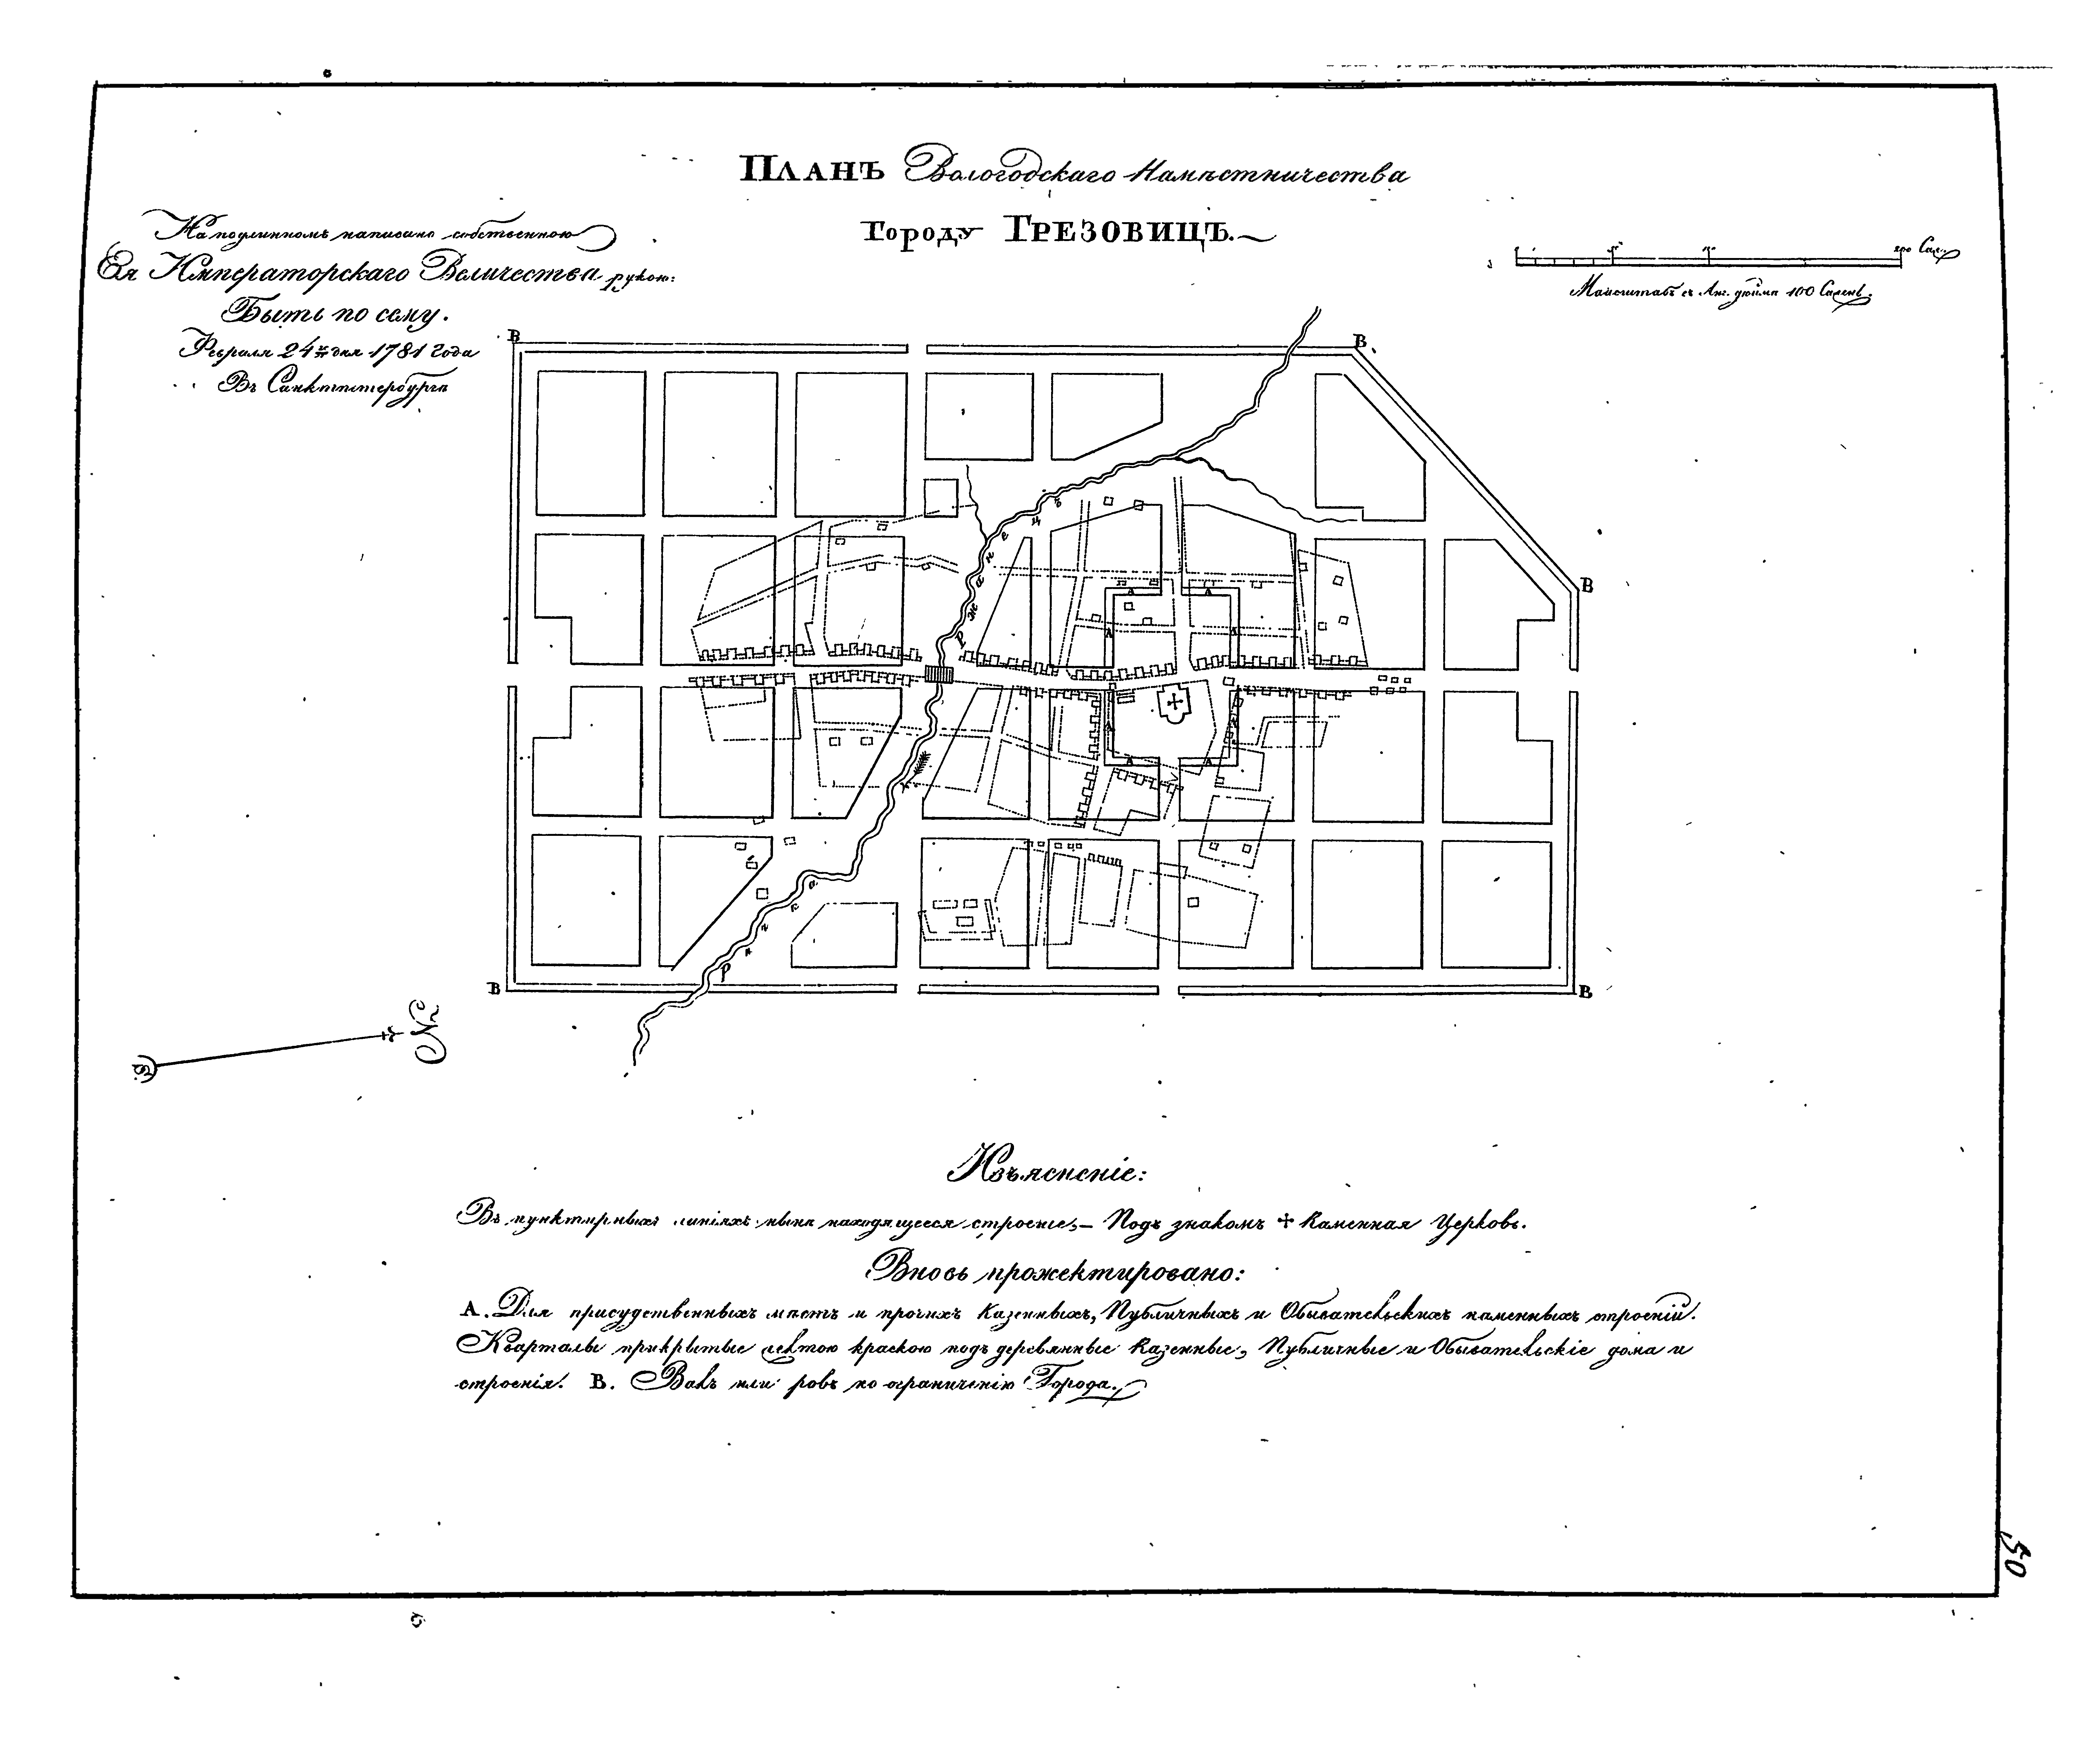 ПЛАНЪ Вологодскаго Намѣстничества
Городу ГРЕЗОВИЦЪ.
На подлинномъ написано собственною
Ея Императорскаго Величества рукою:
Быть по сему.
Февраля 24 дня 1781 Года
Въ Санктпетербургѣ
200 Саж.
Маісштабъ въ Анг. дюймѣ 100 Сажень.
В
В
В
В
В
А
А
А
А
А
А
А
А
Изъясненіе:
Въ пунктирныхъ линіяхъ нынѣ находящееся строеніе, — Подъ знакомъ ✢ Каменная Церковь.
Вновь прожектировано:
А. Для присудственныхъ мѣстъ и прочихъ Казенныхъ, Публичныхъ и Обывательскихъ каменныхъ строеній.
Кварталы прикрытые желтою краскою подъ деревянные Казенные, Публичные и Обывательскіе дома и
строенія. В. Валъ или ровъ по ограниченію Города.
50